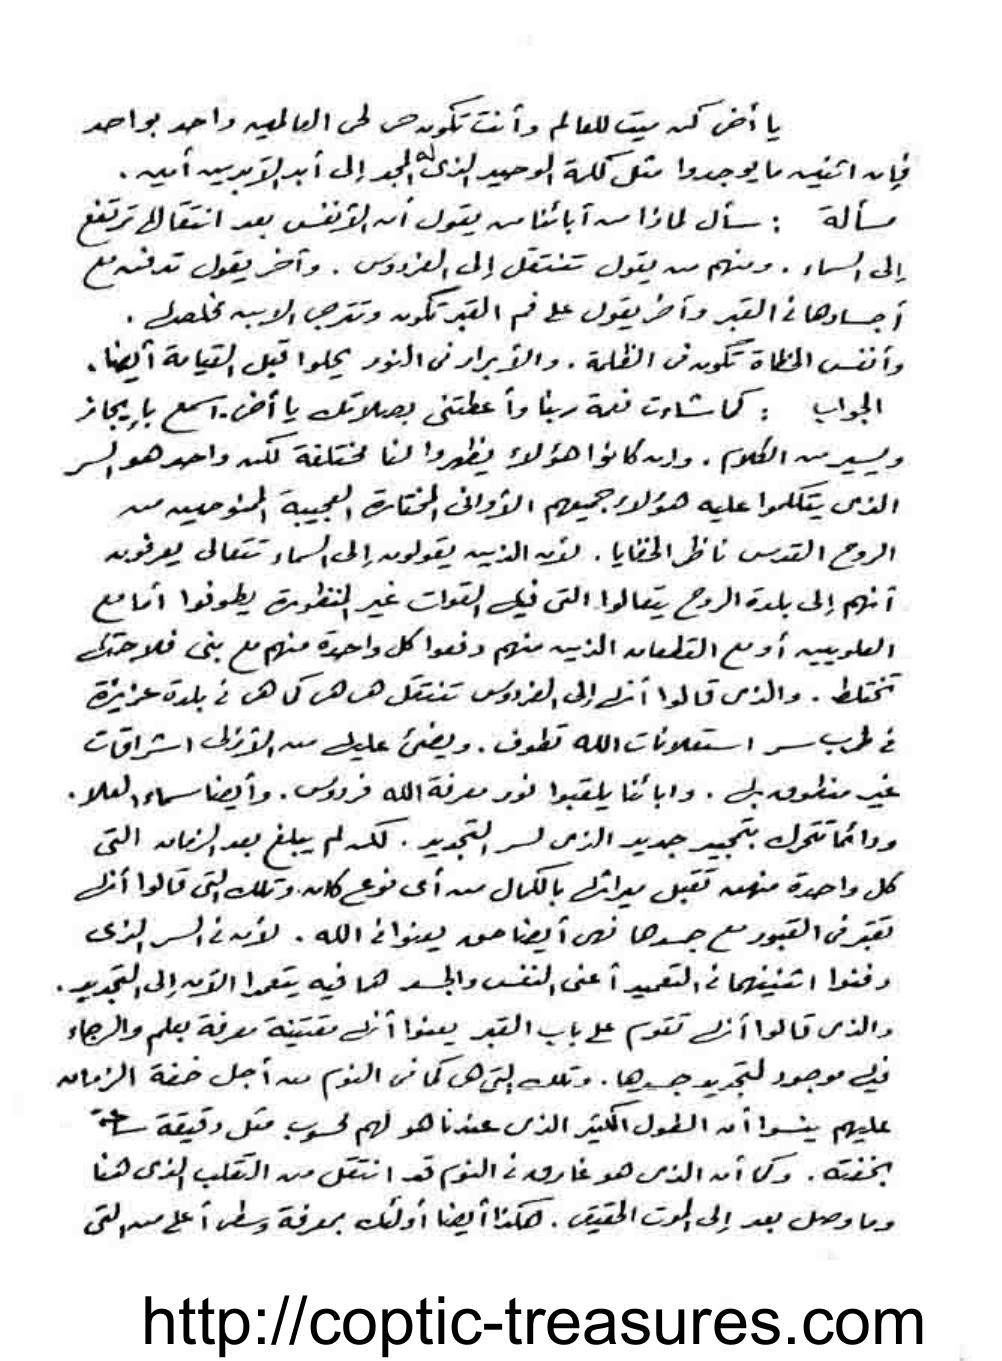 يا أخى كن ميت للعالم وأنت تكون حى لحى العالمين واحد بواحد
فإن اثنين ما يوجدوا مثل كلمة الوحيد الذى له المجد إلى أبد الآبدين آمين .
مسألة : سأل لماذا من آبائنا من يقول أن الأنفس بعد انتقالها ترتفع
إلى السماء . ومنهم من يقول تنتقل إلى الفردوس . وآخر يقول تدفن مع
أجسادها فى القبر وآخر يقول على فم القبر تكون وتترجى الابن مخلصها .
وأنفس الخطاة تكون فى الظلمة . والأبرار فى النور يحلوا قبل القيامة أيضا .
الجواب : كما شاءت نعمة ربنا وأعطتنى بصلاتك يا أخى . اسمع بإيجاز
ويسير من الكلام . وإن كانوا هؤلاء يظهروا لنا مختلفة لكن واحد هو السر
الذى يتكلموا عليه هؤلاء جميعهم الأوانى المختارة العجيبة الممنوحين من
الروح القدس ناظر الخفايا . لأن الذين يقولون إلى السماء تتعالى يعرفون
أنهم إلى بلدة الروح يتعالوا التى فيها القوات غير المنظورة يطوفوا أما مع
العلويين أو مع القطعان الذين منهم دفعوا كل واحدة منهم مع بنى فلاحتها
تختلط . والذى قالوا أنها إلى الفردوس تنتقل هى هى كما هى فى بلدة عزيزة
فى طرب سر استعلانات الله تطوف . ويضئ عليها من الأزلى اشراقات
غير منطوق بها . وابائنا يلقبوا نور معرفة الله فردوس . وأيضا سماء العلا .
ودائما تتحرك بتمجيد جديد الذى لسر التجديد . لكن لم يبلغ بعد الزمان التى
كل واحدة منهن تقبل ميراثها بالكمال من أى نوع كان . وتلك التى قالوا أنها
تقبر فى القبور مع جسدها فهى أيضا حق يعنوا فى الله . لأن فى السر الذى
دفنوا اثنينهما فى التعميد أعنى النفس والجسد هما فيه يتعمدا الآن إلى التجديد .
والذى قالوا أنها تقوم على باب القبر يعنوا أنها مقتنية معرفة بعلم والرجاء
فيها موجود لتجديد جسدها . وتلك التى هى كما فى النوم من أجل خفة الزمان
عليهم ينسوا أن الطول الكثير الذى عندنا هو لهم محسوب مثل دقيقة ساعة
بخفته . وكما أن الذى هو غارق فى النوم قد انتقل من التقلب الذى هنا
وما وصل بعد إلى الموت الحقيقى . هكذا أيضا أولئك بمعرفة وسطى أعلى من التى
http://coptic-treasures.com